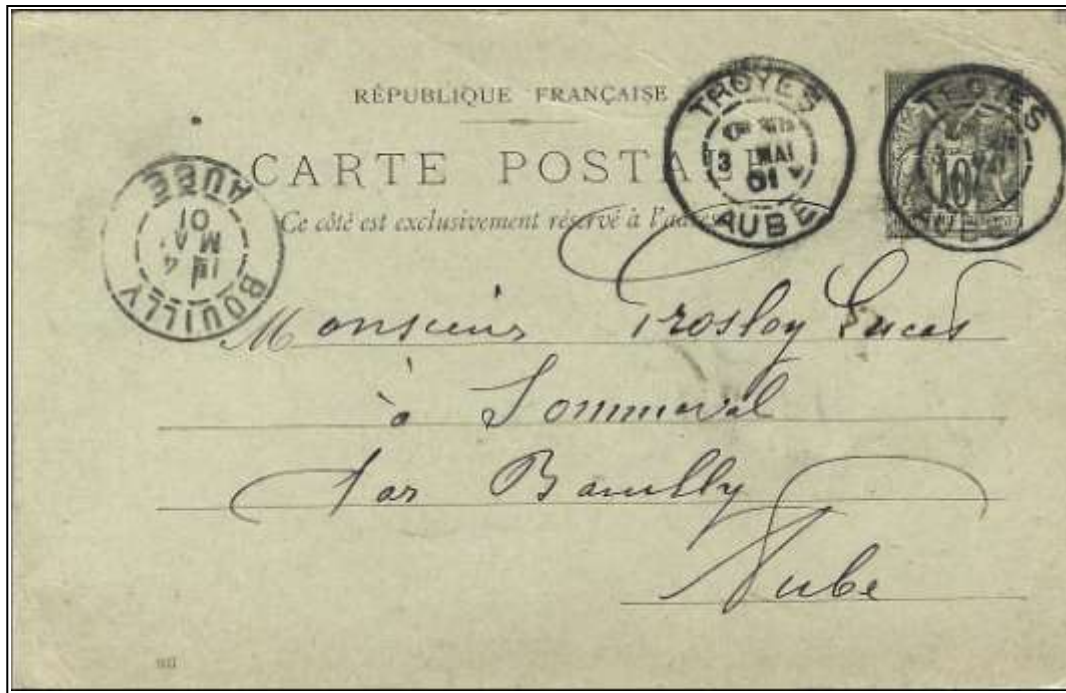 RÉPUBLIQUE FRANÇAISE
CARTE POSTALE
Ce côté est exclusivement réservé à l'adresse
TROYES
3 MAI
01
AUBE
TROYES
10
AUBE
BOUILLY
4
MAI
01
AUBE
Monsieur Trosley Lucas
à Sommeval
par Bouilly
Aube